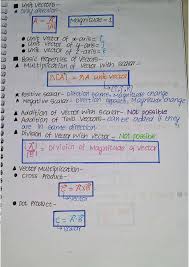 Unit Vectors-
Only direction-
Â = A/|A| Magnitude = 1
Unit vector of x-axis = î
Unit vector of y-axis = ĵ
Unit vector of z-axis = k̂
Basic Properties of Vectors-
Multiplication of Vector with Scalar-
= nA unit vector
Positive Scalar- Direction same, Magnitude change
Negative Scalar- Direction opposite, Magnitude change
Addition of Vector with Scalar- Not possible
Addition of Two Vectors- can be added if they
are in same direction
Division of Vector with Vector- Not possible
= Division of Magnitude of Vector
Vector Multiplication-
Cross Product-
C = A x B
vector
Dot Product-
C = A . B